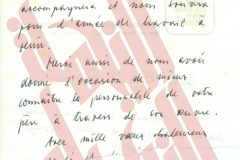 accompagnera et nous suivra
pour l'année de travail à
venir.
Merci aussi de nous avoir
donné l'occasion de mieux
connaître la personnalité de votre
père à travers de son œuvre.
Avec mille vœux chaleureux